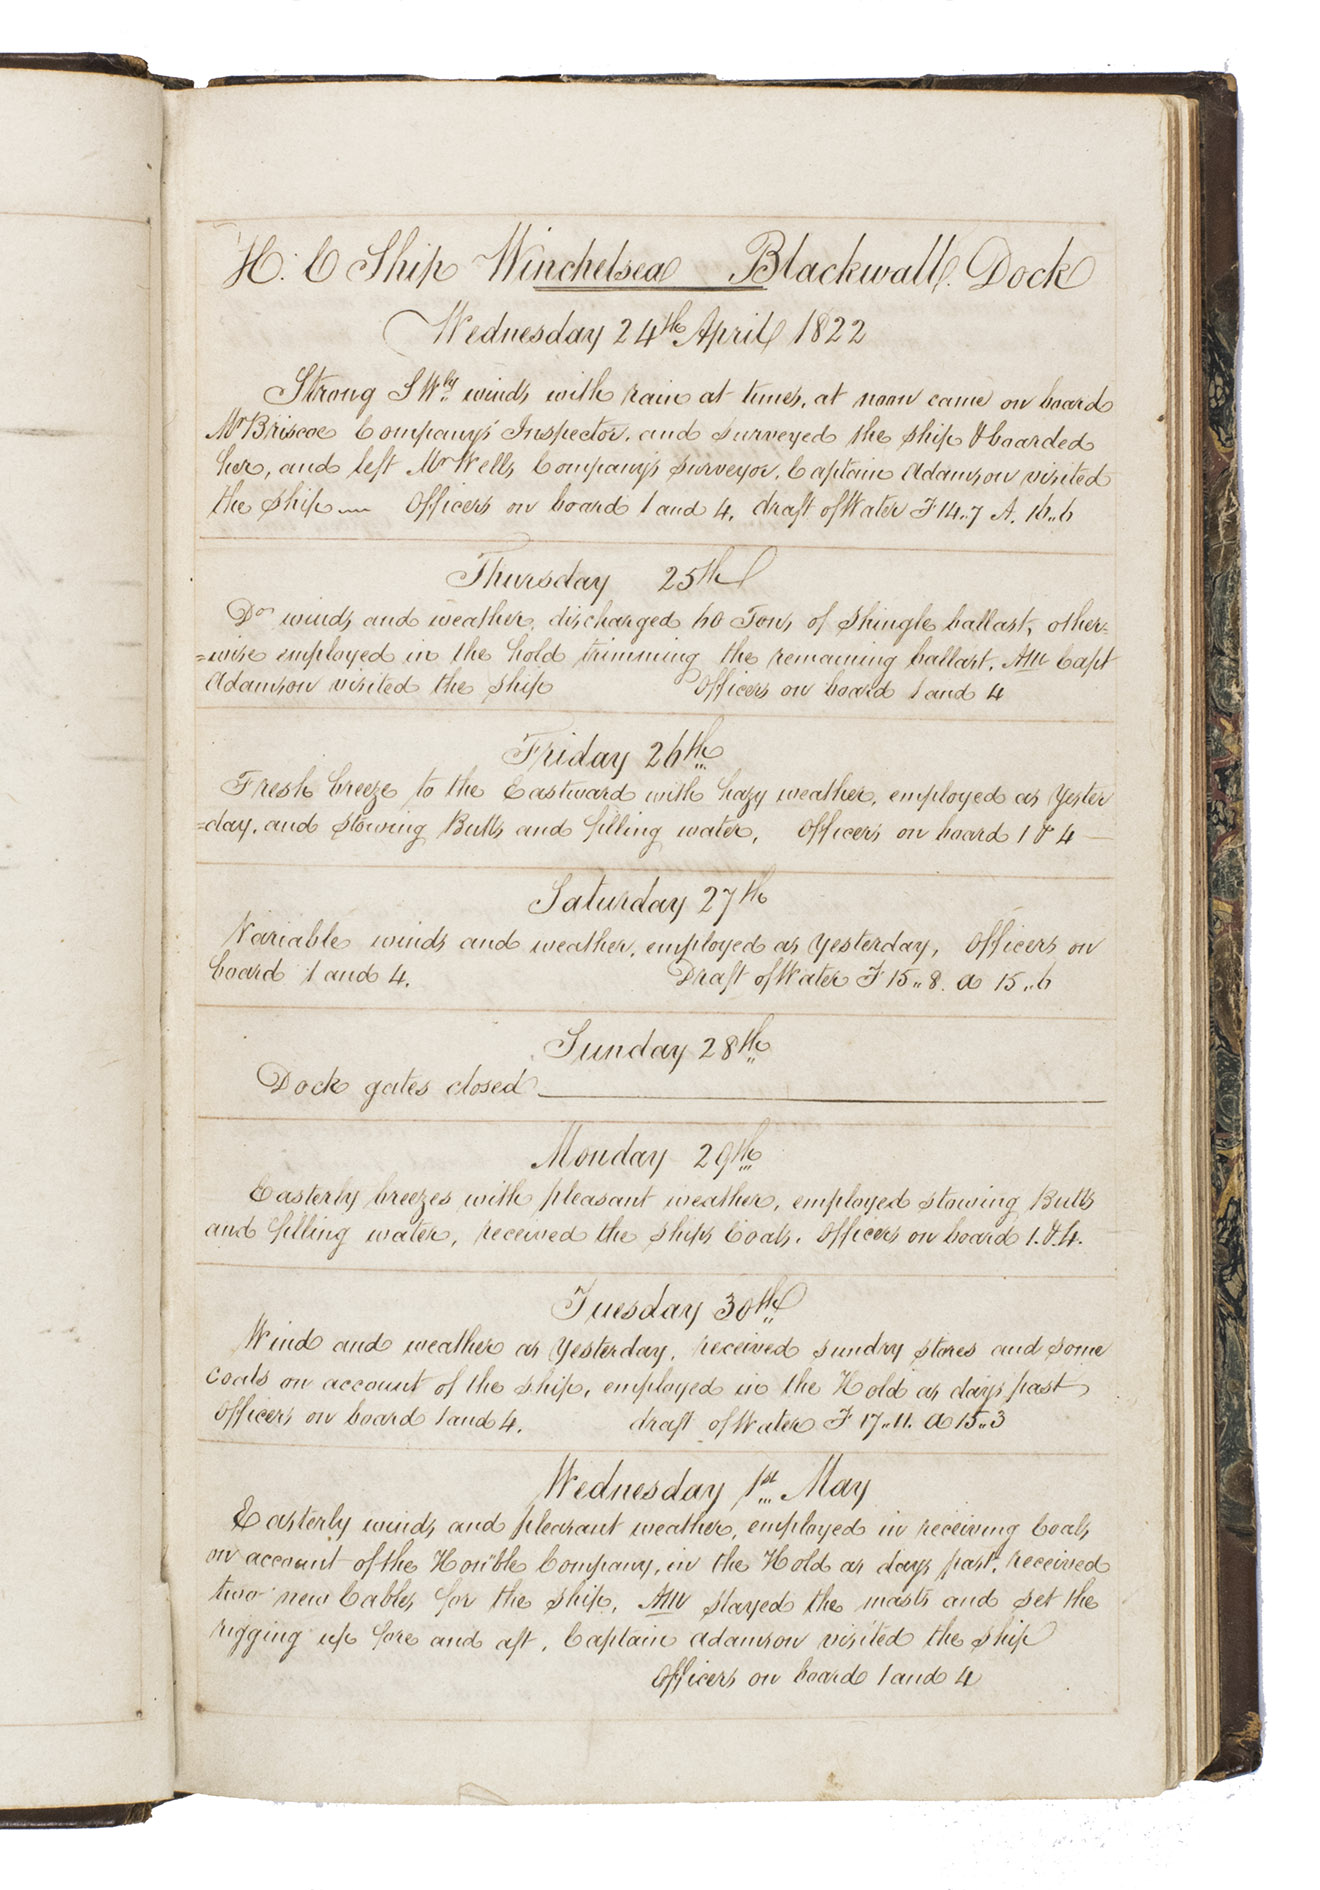 H. C Ship Winchelsea Blackwall. Dock
Wednesday 24th April 1822
Strong S Wly winds with rain at times, at noon came on board
Mr Briscoe Company's Inspector, and surveyed the ship & boarded
her, and left Mr Wells Company's surveyor, Captain Adamson visited
the ship Officers on board 1 and 4, draft of Water F 14..7 A. 16..6
Thursday 25th
Do winds and weather, discharged 60 Tons of Shingle ballast, other=
=wise employed in the hold trimming the remaining ballast, AM Capt
Adamson visited the ship Officers on board 1 and 4
Friday 26th
Fresh breeze to the Eastward with hazy weather, employed as Yester
=day, and stowing Butts and filling water, Officers on board 1 & 4
Saturday 27th
Variable winds and weather, employed as Yesterday, Officers on
board 1 and 4. Draft of Water F 15..8. A 15..6
Sunday 28th
Dock gates closed
Monday 29th
Easterly breezes with pleasant weather, employed stowing Butts
and filling water, received the ships Coals, Officers on board 1. & 4.
Tuesday 30th
Wind and weather as Yesterday, received sundry stores and some
coals on account of the ship, employed in the Hold as days past
Officers on board 1 and 4. draft of Water F 17..11. A 15..3
Wednesday 1st May
Easterly winds and pleasant weather, employed in receiving Coals
on account of the Honble Company, in the Hold as days past, received
two new Cables for the ship, AM stayed the masts and set the
rigging up fore and aft, Captain Adamson visited the ship
Officers on board 1 and 4